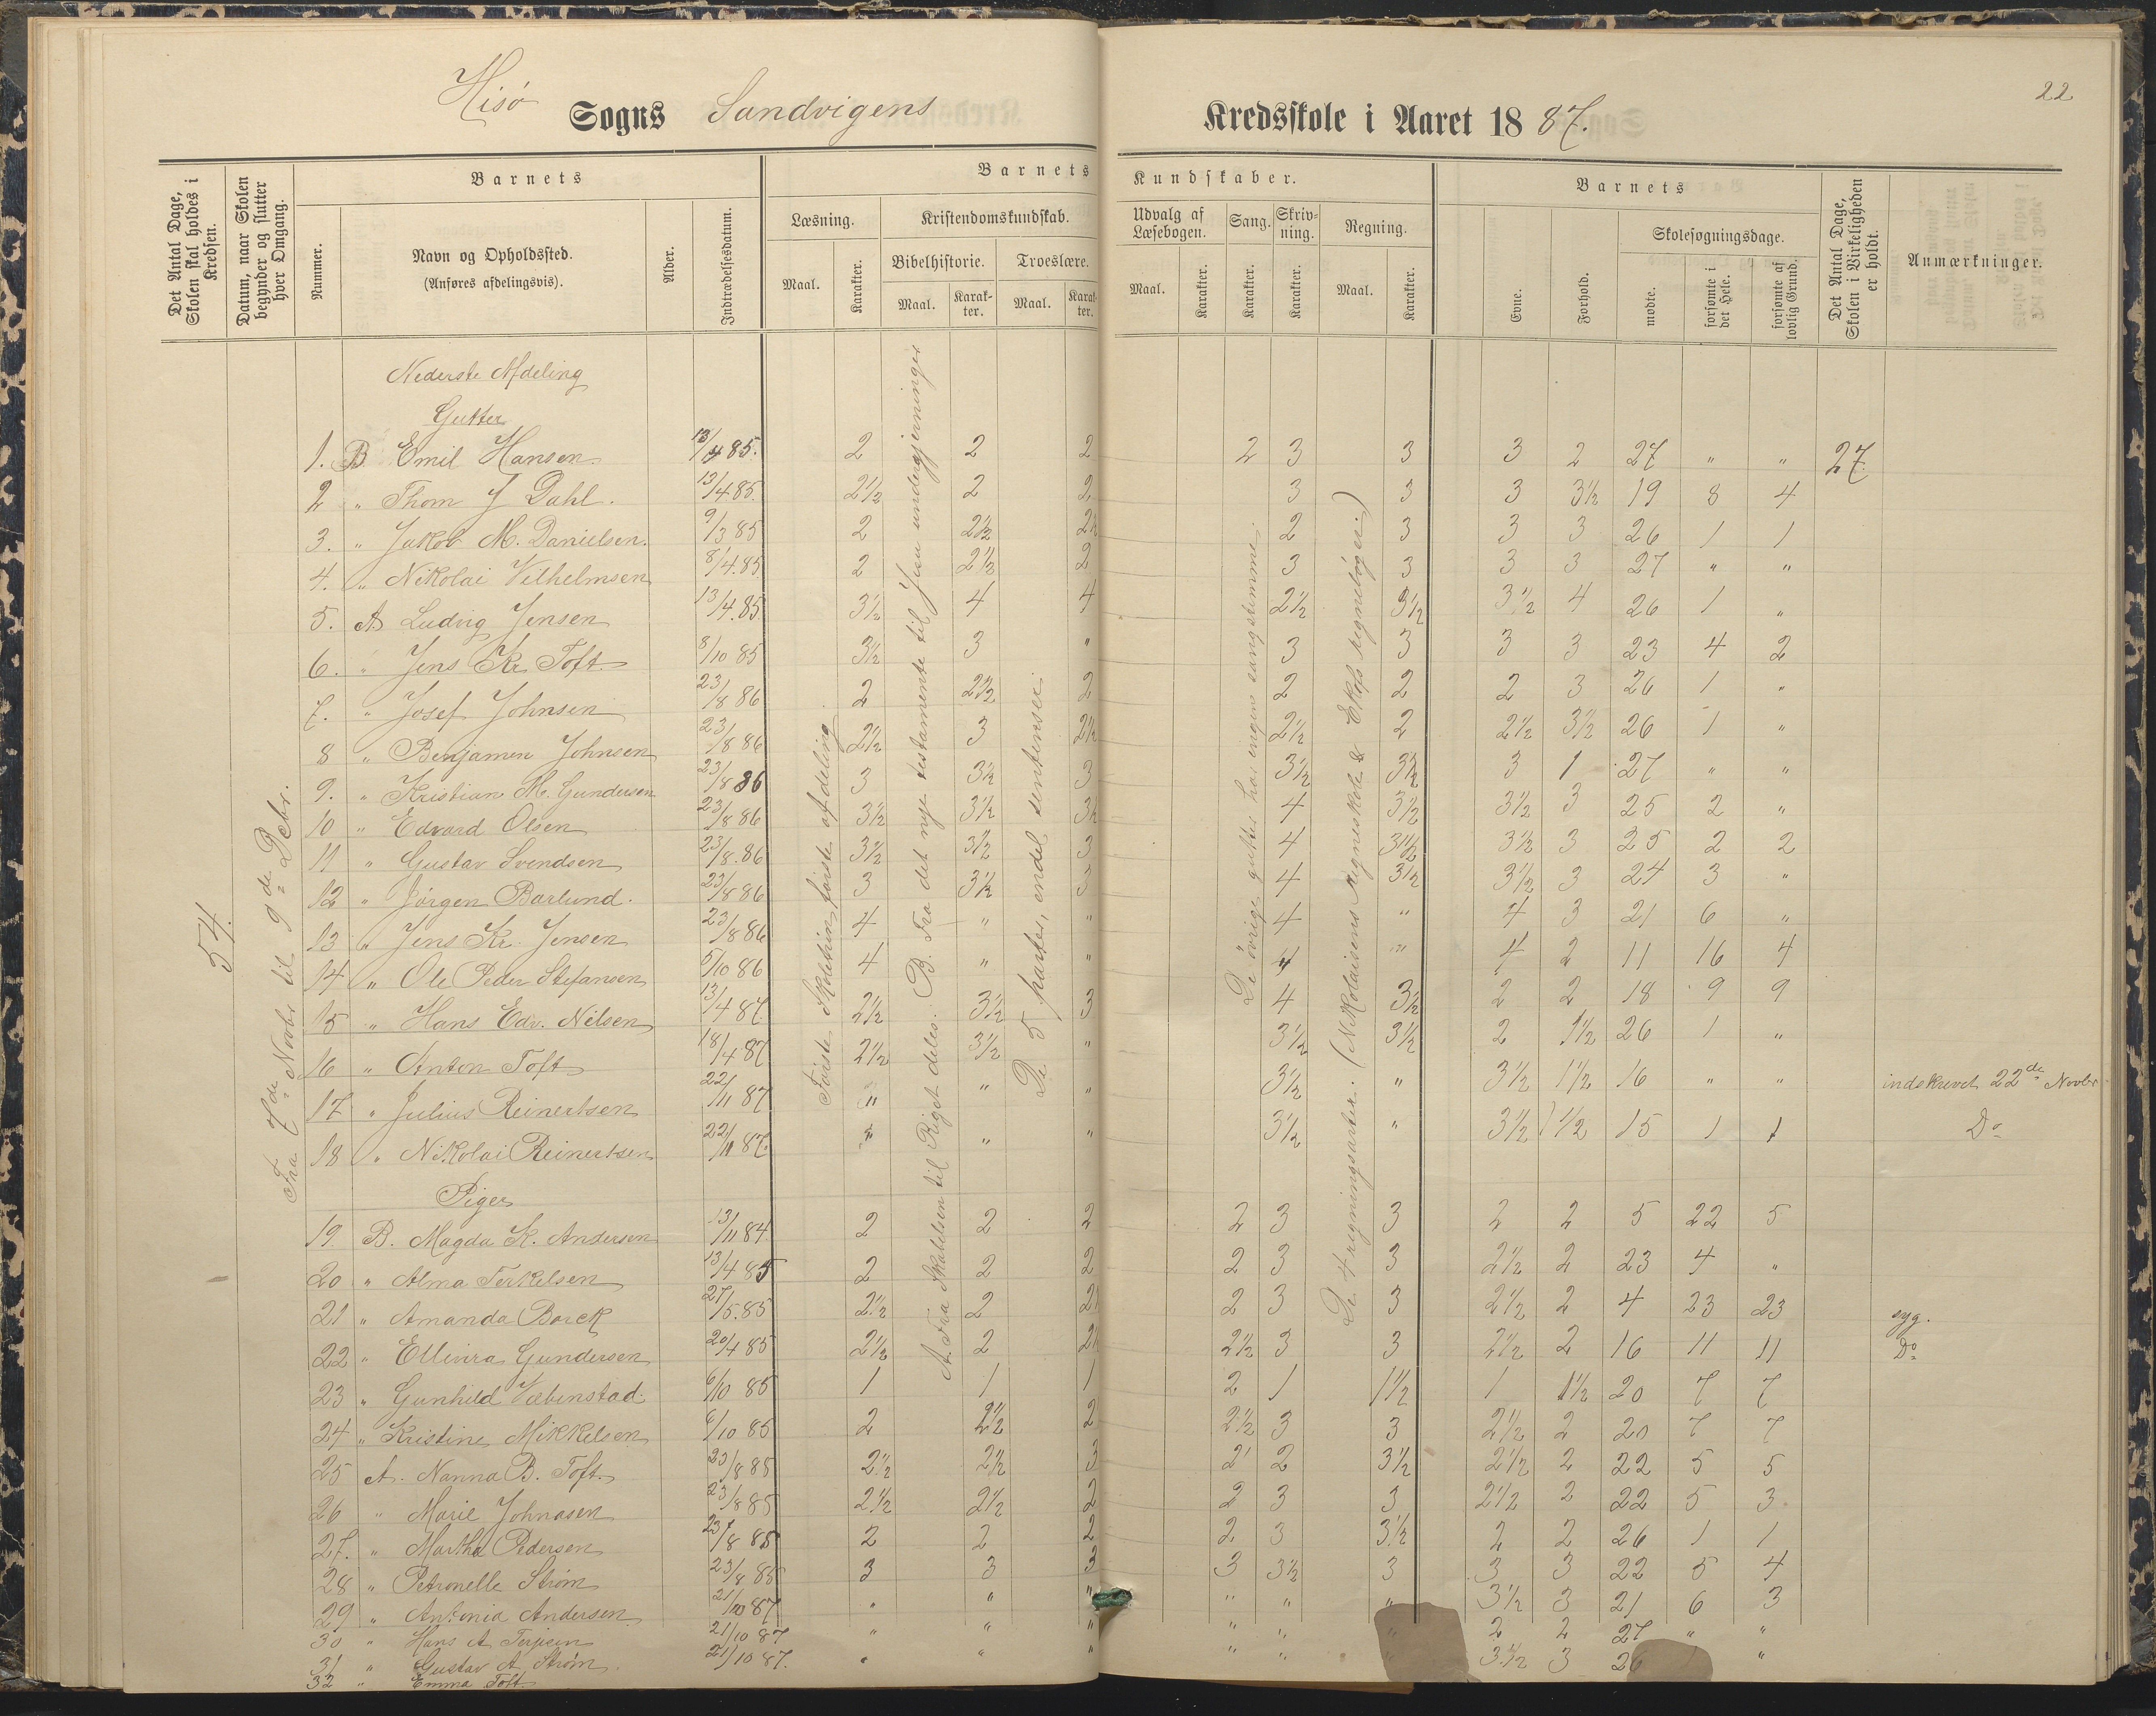 22
Hisø Sogns Sandvigens Kredsskole i Aaret 1887.
Det Antal Dage, Skolen skal holdes i Kredsen.
Datum, naar Skolen begynder og slutter hver Omgang.
Barnets
Nummer.
Navn og Opholdssted.
(Anføres afdelingsvis).
Alder.
Indtrædelsesdatum.
Barnets Kundskaber.
Læsning.
Maal.
Karakter.
Kristendomskundskab.
Bibelhistorie.
Maal.
Karakter.
Troeslære.
Maal.
Karakter.
Udvalg af Læsebogen.
Maal.
Karakter.
Sang.
Karakter.
Skrivning.
Karakter.
Regning.
Maal.
Karakter.
Barnets
Evne.
Forhold.
Skolesøgningsdage.
mødte.
forsømte i det Hele.
forsømte af lovlig Grund.
Det Antal Dage, Skolen i Virkeligheden er holdt.
Anmærkninger.
54.
Fra 7de Novbr til 9de Debr.
Første Skoletrin første afdeling.
A. Fra Skabelsen til Riget deles. B. Fra det nye testamente til Jesu undergjerninger
De 5 parter, endel sentenser.
De øvrige gutter har ingen sangstemme.
De 4 regningsarter. (Nikolaisens Regneskole & Ekes regnebøger.)
Nederste Afdeling
Gutter
1. B Emil Hansen. 13/4 85. 2 2 2 2 3 3 3 2 27 " " 27
2 " Thom J Dahl. 13/4 85. 2½ 2 2 3 3 3 3½ 19 8 4
3. " Jakob M. Danielsen. 9/3 85 2 2½ 2½ 2 3 3 3 26 1 1
4. " Nikolai Vilhelmsen 8/4. 85. 2 2½ 2 3 3 3 3 27 " "
5. A Ludvig Jensen 13/4. 85. 3½ 4 4 2½ 3½ 3½ 4 26 1 "
6. " Jens Kr. Toft 8/10 85 3½ 3 " 3 3 3 3 23 4 2
7. " Josef Johnsen 23/8 86 2 2½ 2 2 2 2 3 26 1 "
8 " Benjamen Johnsen 23/8 86 2½ 3 2½ 2½ 2 2½ 3½ 26 1 "
9. " Kristian M. Gundersen 23/8 86 3 3½ 3 3½ 3½ 3 1 27 " "
10 " Edvard Olsen 23/8 86 3½ 3½ 3½ 4 3½ 3½ 3 25 2 "
11 " Gustav Svendsen 23/8. 86 3½ 3½ 3 4 3½ 3½ 3 25 2 2
12 " Jørgen Barlund. 23/8 86 3 3½ 3 4 3½ 3½ 3 24 3 "
13 " Jens Kr. Jensen 23/8 86 4 " " 4 " 4 3 21 6 "
14 " Ole Peder Stefansen 5/10 86 4 " " 4 " 4 2 11 16 4
15 " Hans Edv. Nilsen 13/4 87. 2½ 3½ 3 4 3½ 2 2 18 9 9
16 " Anton Toft 18/4 87. 2½ 3½ " 3½ 3½ 2 1½ 26 1 "
17 " Julius Reinertsen 22/11 87 " " " 3½ " 3½ 1½ 16 " " indskrevet 22de Novbr
18 " Nikolai Reinertsen 22/11 87. " " " 3½ " 3½ 1½ 15 1 1 Do
Piger
19 B. Magda K. Andersen 13/11 84. 2 2 2 2 3 3 2 2 5 22 5
20 " Alma Terkelsen 13/4 85 2 2 2 2 3 3 2½ 2 23 4 "
21 " Amanda Borck 27/5. 85 2½ 2 2 3 3 2½ 2 4 23 23 syg.
22 " Ellivira Gundersen 20/4 85 2½ 2 2½ 3 3 2½ 2 16 11 11 Do
23 " Gunhild Væbenstad. 6/10 85 1 1 1 2 1 1½ 1 1½ 20 7 7
24 " Kristine Mikkelsen 6/10 85 2 2½ 2 2½ 3 3 2½ 2 20 7 7
25 A. Nanna B. Toft. 23/8 85 2½ 2½ 3 2 2 3½ 2½ 2 22 5 5
26 " Marie Johnasen 23/8 85 2½ 2½ 2 2 3 3 2½ 2 22 5 3.
27. " Martha Pedersen 23/8 85 2 2 2 2 3 3½ 2 2 26 1 1
28 " Petronelle Strøm 23/8 85 3 3 3 3 3½ 3 3 3 22 5 4
29 " Antonia Andersen. 21/10 87 " " " " " " 3½ 3 21 6 3
30 " Hans A Terjesen 21/10 87 " " " " " " 2 2 27 " "
31 " Gustav A. Strøm. 21/10 87. " " " " " 3½ 3 26 "
32 " Emma Toft